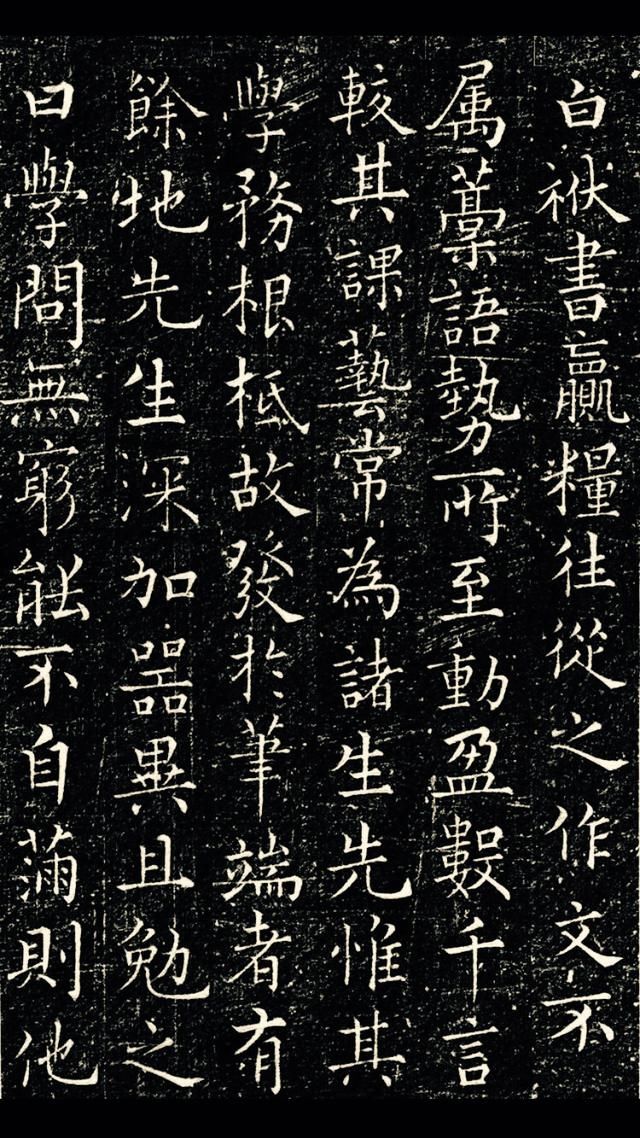 白袱書贏糧往從之作文不
属藳語勢所至動盈數千言
較其課藝常為諸生先惟其
學務根柢故發於筆端者有
餘地先生深加器異且勉之
曰學問無窮能不自滿則他